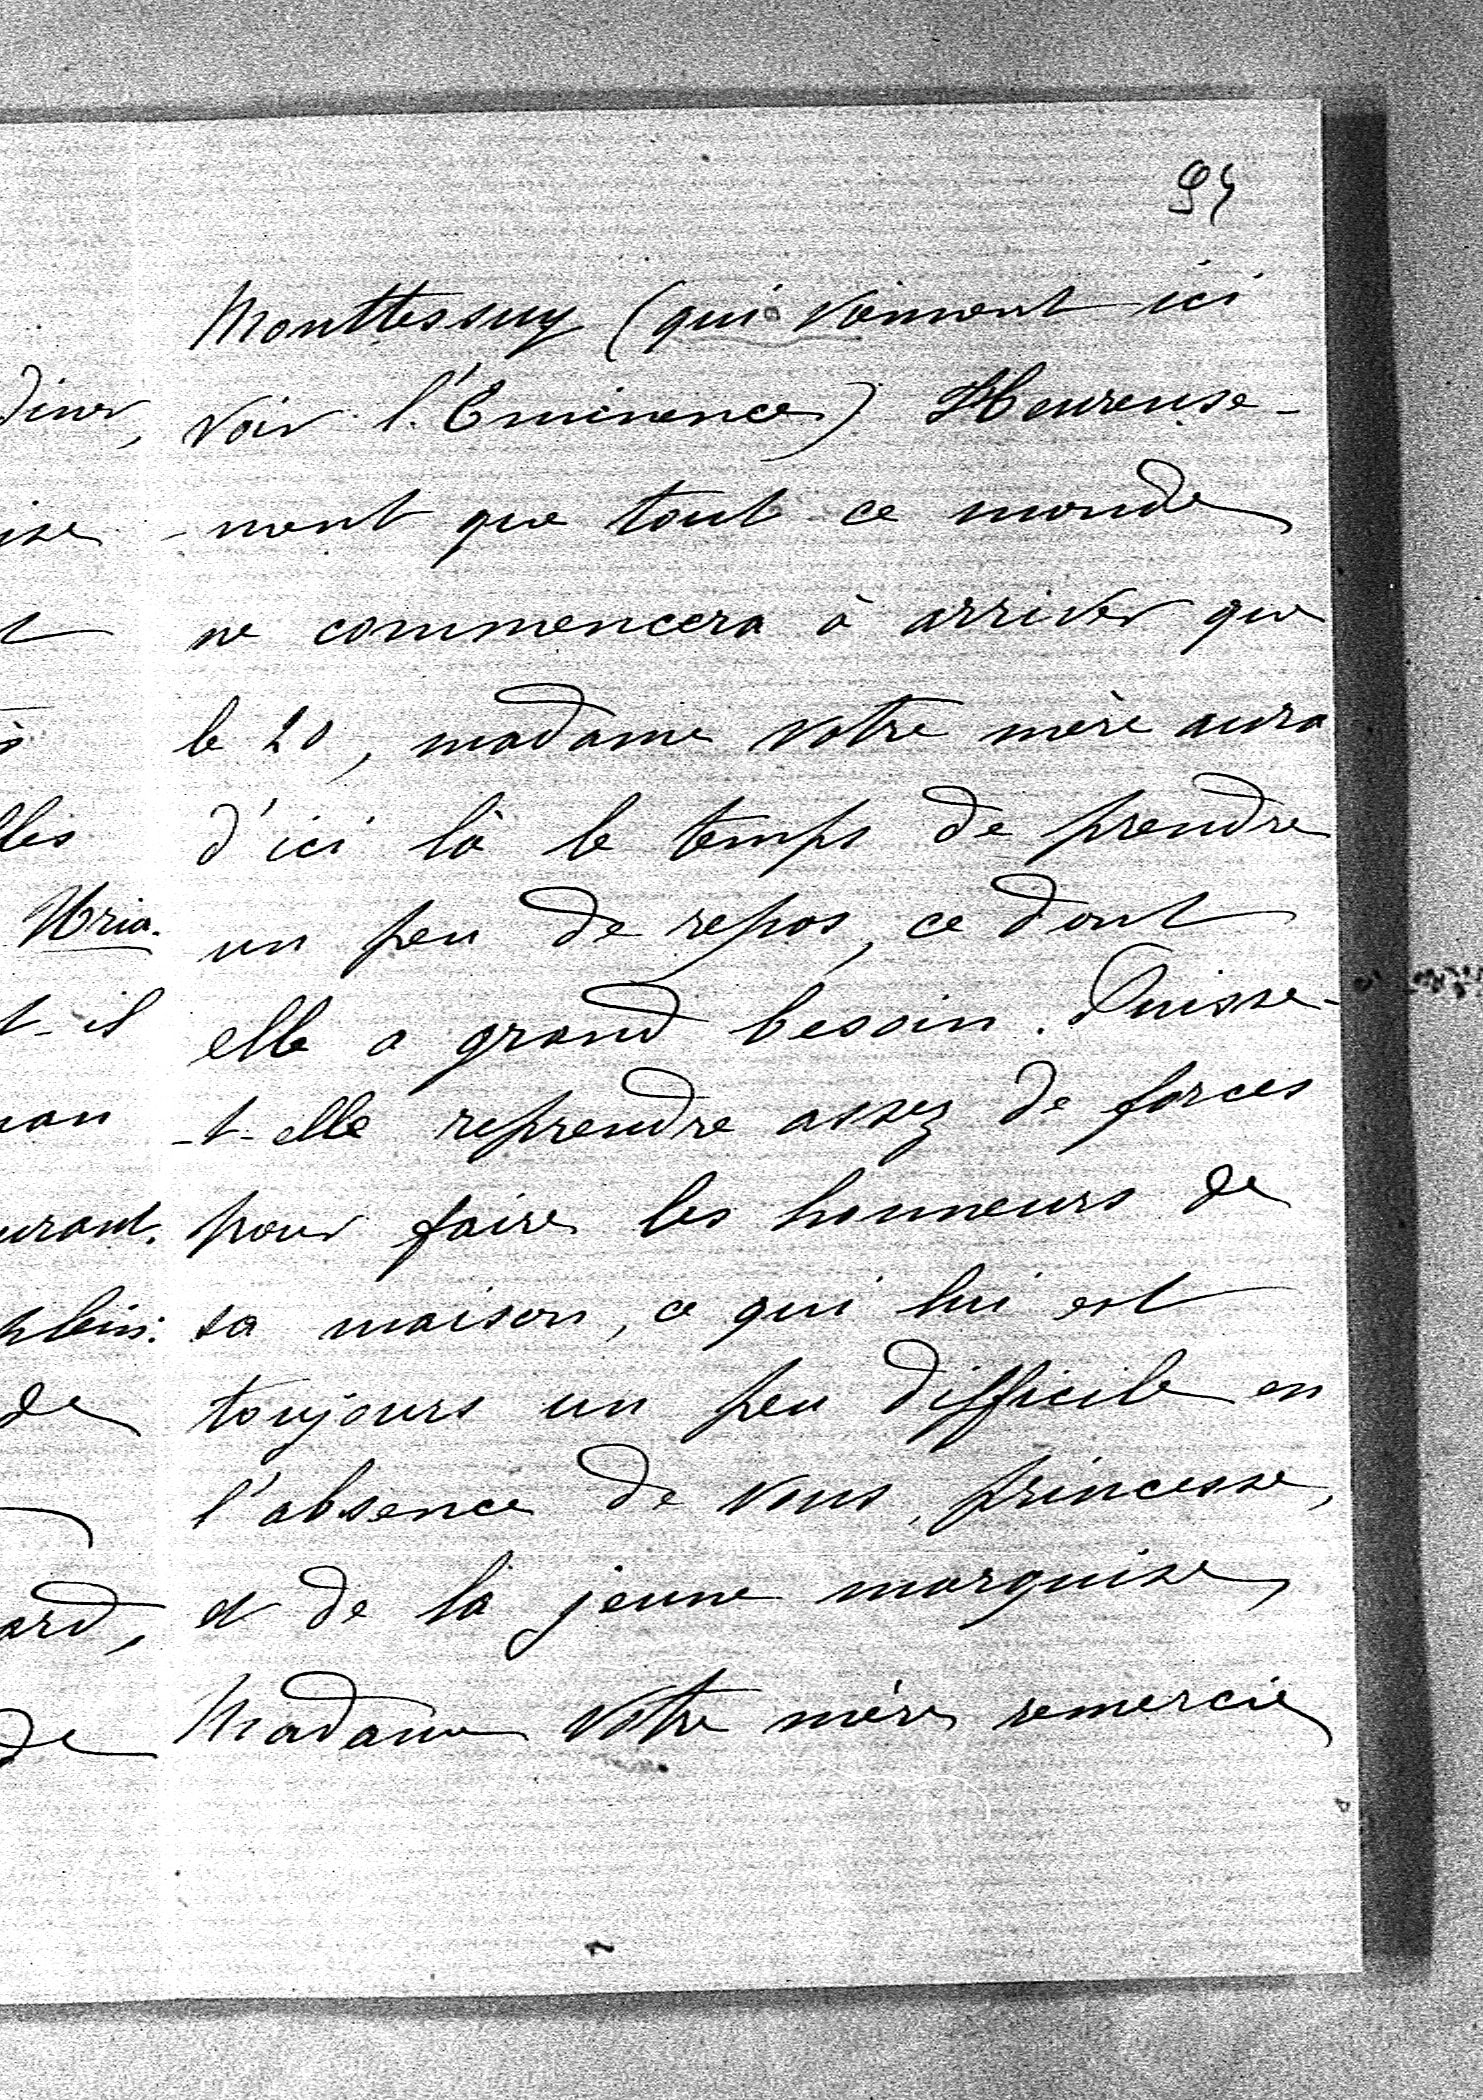 95
Monttessuy (qui viennent ici
voir l'Eminence) Heureuse-
-ment que tout ce monde
ne commencera à arriver que
le 20, madame votre mère aura
d'ici là le temps de prendre
un peu de repos, ce dont
elle a grand besoin. Puisse-
-t-elle reprendre assez de forces
pour faire les honneurs de
sa maison, ce qui lui est
toujours un peu difficile en
l'absence de vous, princesse,
et de la jeune marquise,
Madame votre mère remercie
diner,
ise
t
lles
t-il
urant.
de
ard,
de